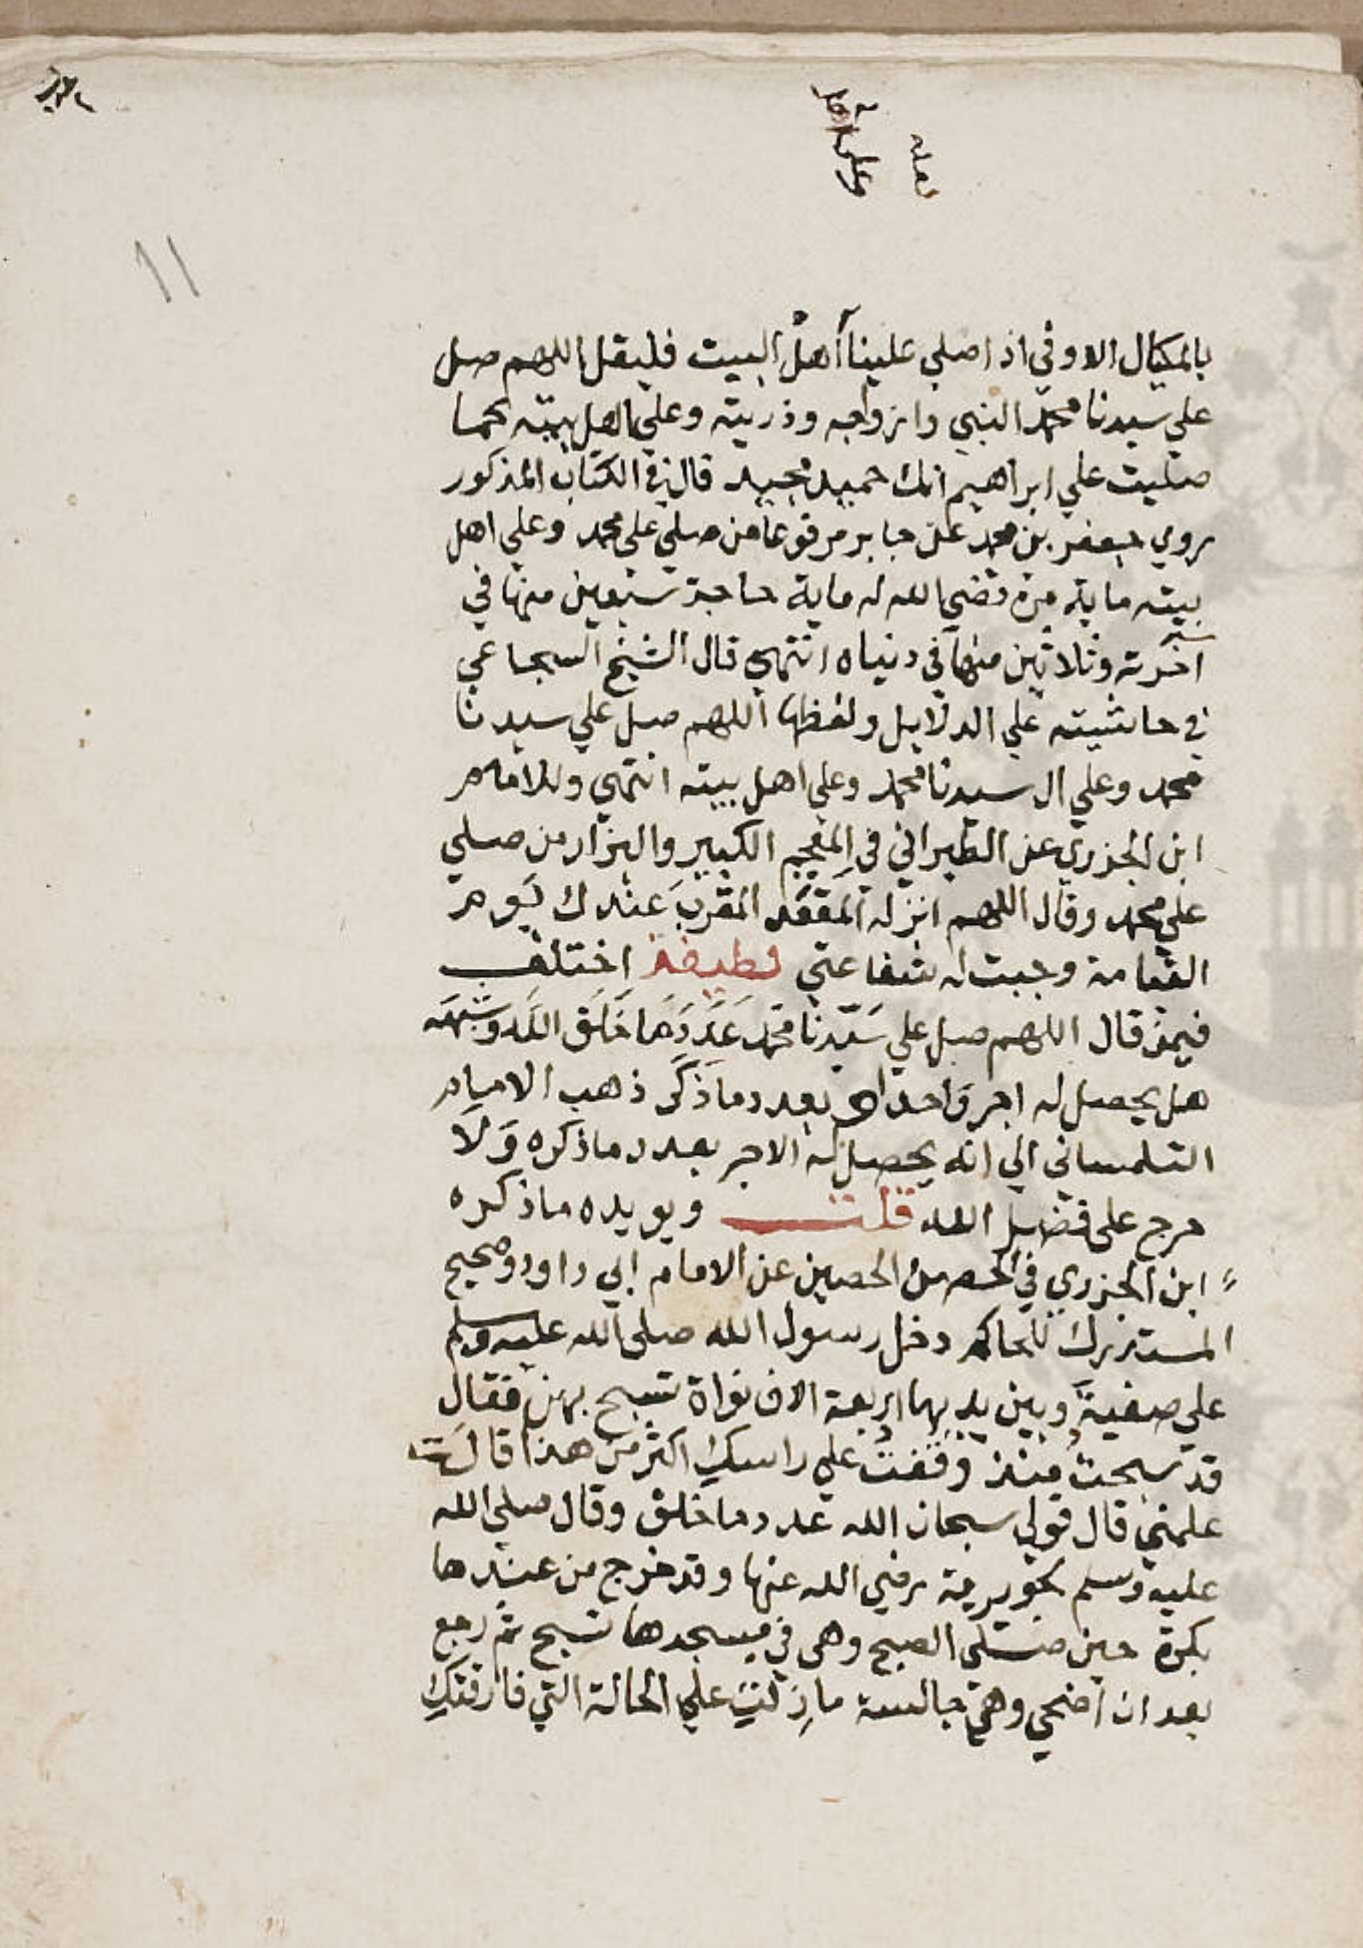 لعله
وعلى آله
١١
بالمكيال الاوفي اذا صلي علينا أهل البيت فليقل اللهم صل
علي سيدنا محمد النبي وازواجه وذريته وعلي اهل بيته كما
صليت علي ابراهيم انك حميد مجيد قال في الكتاب المذكور
روي جعفر بن محمد عن جابر مرفوعا من صلي علي محمد وعلي اهل
بيته ماية مرة قضي الله له ماية حاجة سبعين منها في
آخرته وثلاثين منها في دنياه انتهي قال الشيخ السجاعي
في حاشيته علي الدلايل ولفظها اللهم صل علي سيدنا
محمد وعلي ال سيدنا محمد وعلي اهل بيته انتهي وللامام
ابن الجزري عن الطبراني في المعجم الكبير والبزار من صلي
علي محمد وقال اللهم انزله المقعد المقرب عندك يوم
القيامة وجبت له شفاعتي لطيفة اختلف
فيمن قال اللهم صل علي سَيّدنا محمد عَدَدَ مَا خَلَق اللَه وشبهه
هل يحصل له اجر واحد او بعدد ما ذكر ذهب الامام
التلمساني الي انه يحصل له الاجر بعدد ما ذكره وَلَا
حرج على فضل الله قلت ويويده ما ذكره
ابن الجزري في الحصن الحصين عن الامام ابي داود وصحيح
المستدرك للحاكم دخل رسول الله صلى الله عليه وسلم
علي صفية وبين يديها اربعة الاف نواة تسبح بهن فقال
قد سبحت منذ وقفتُ علي راسكِ اكثر من هذا قالَت
علمني قال قولي سبحان الله عدد ما خلق وقال صلي الله
عليه وسلم لجويرية رضي الله عنها وقد خرج من عندها
بكرة حين صلي الصبح وهى في مسجدها تسبح ثم رجع
بعد ان اضحي وهي جالسة ما زلتِ علي الحالة التي فارقتكِ